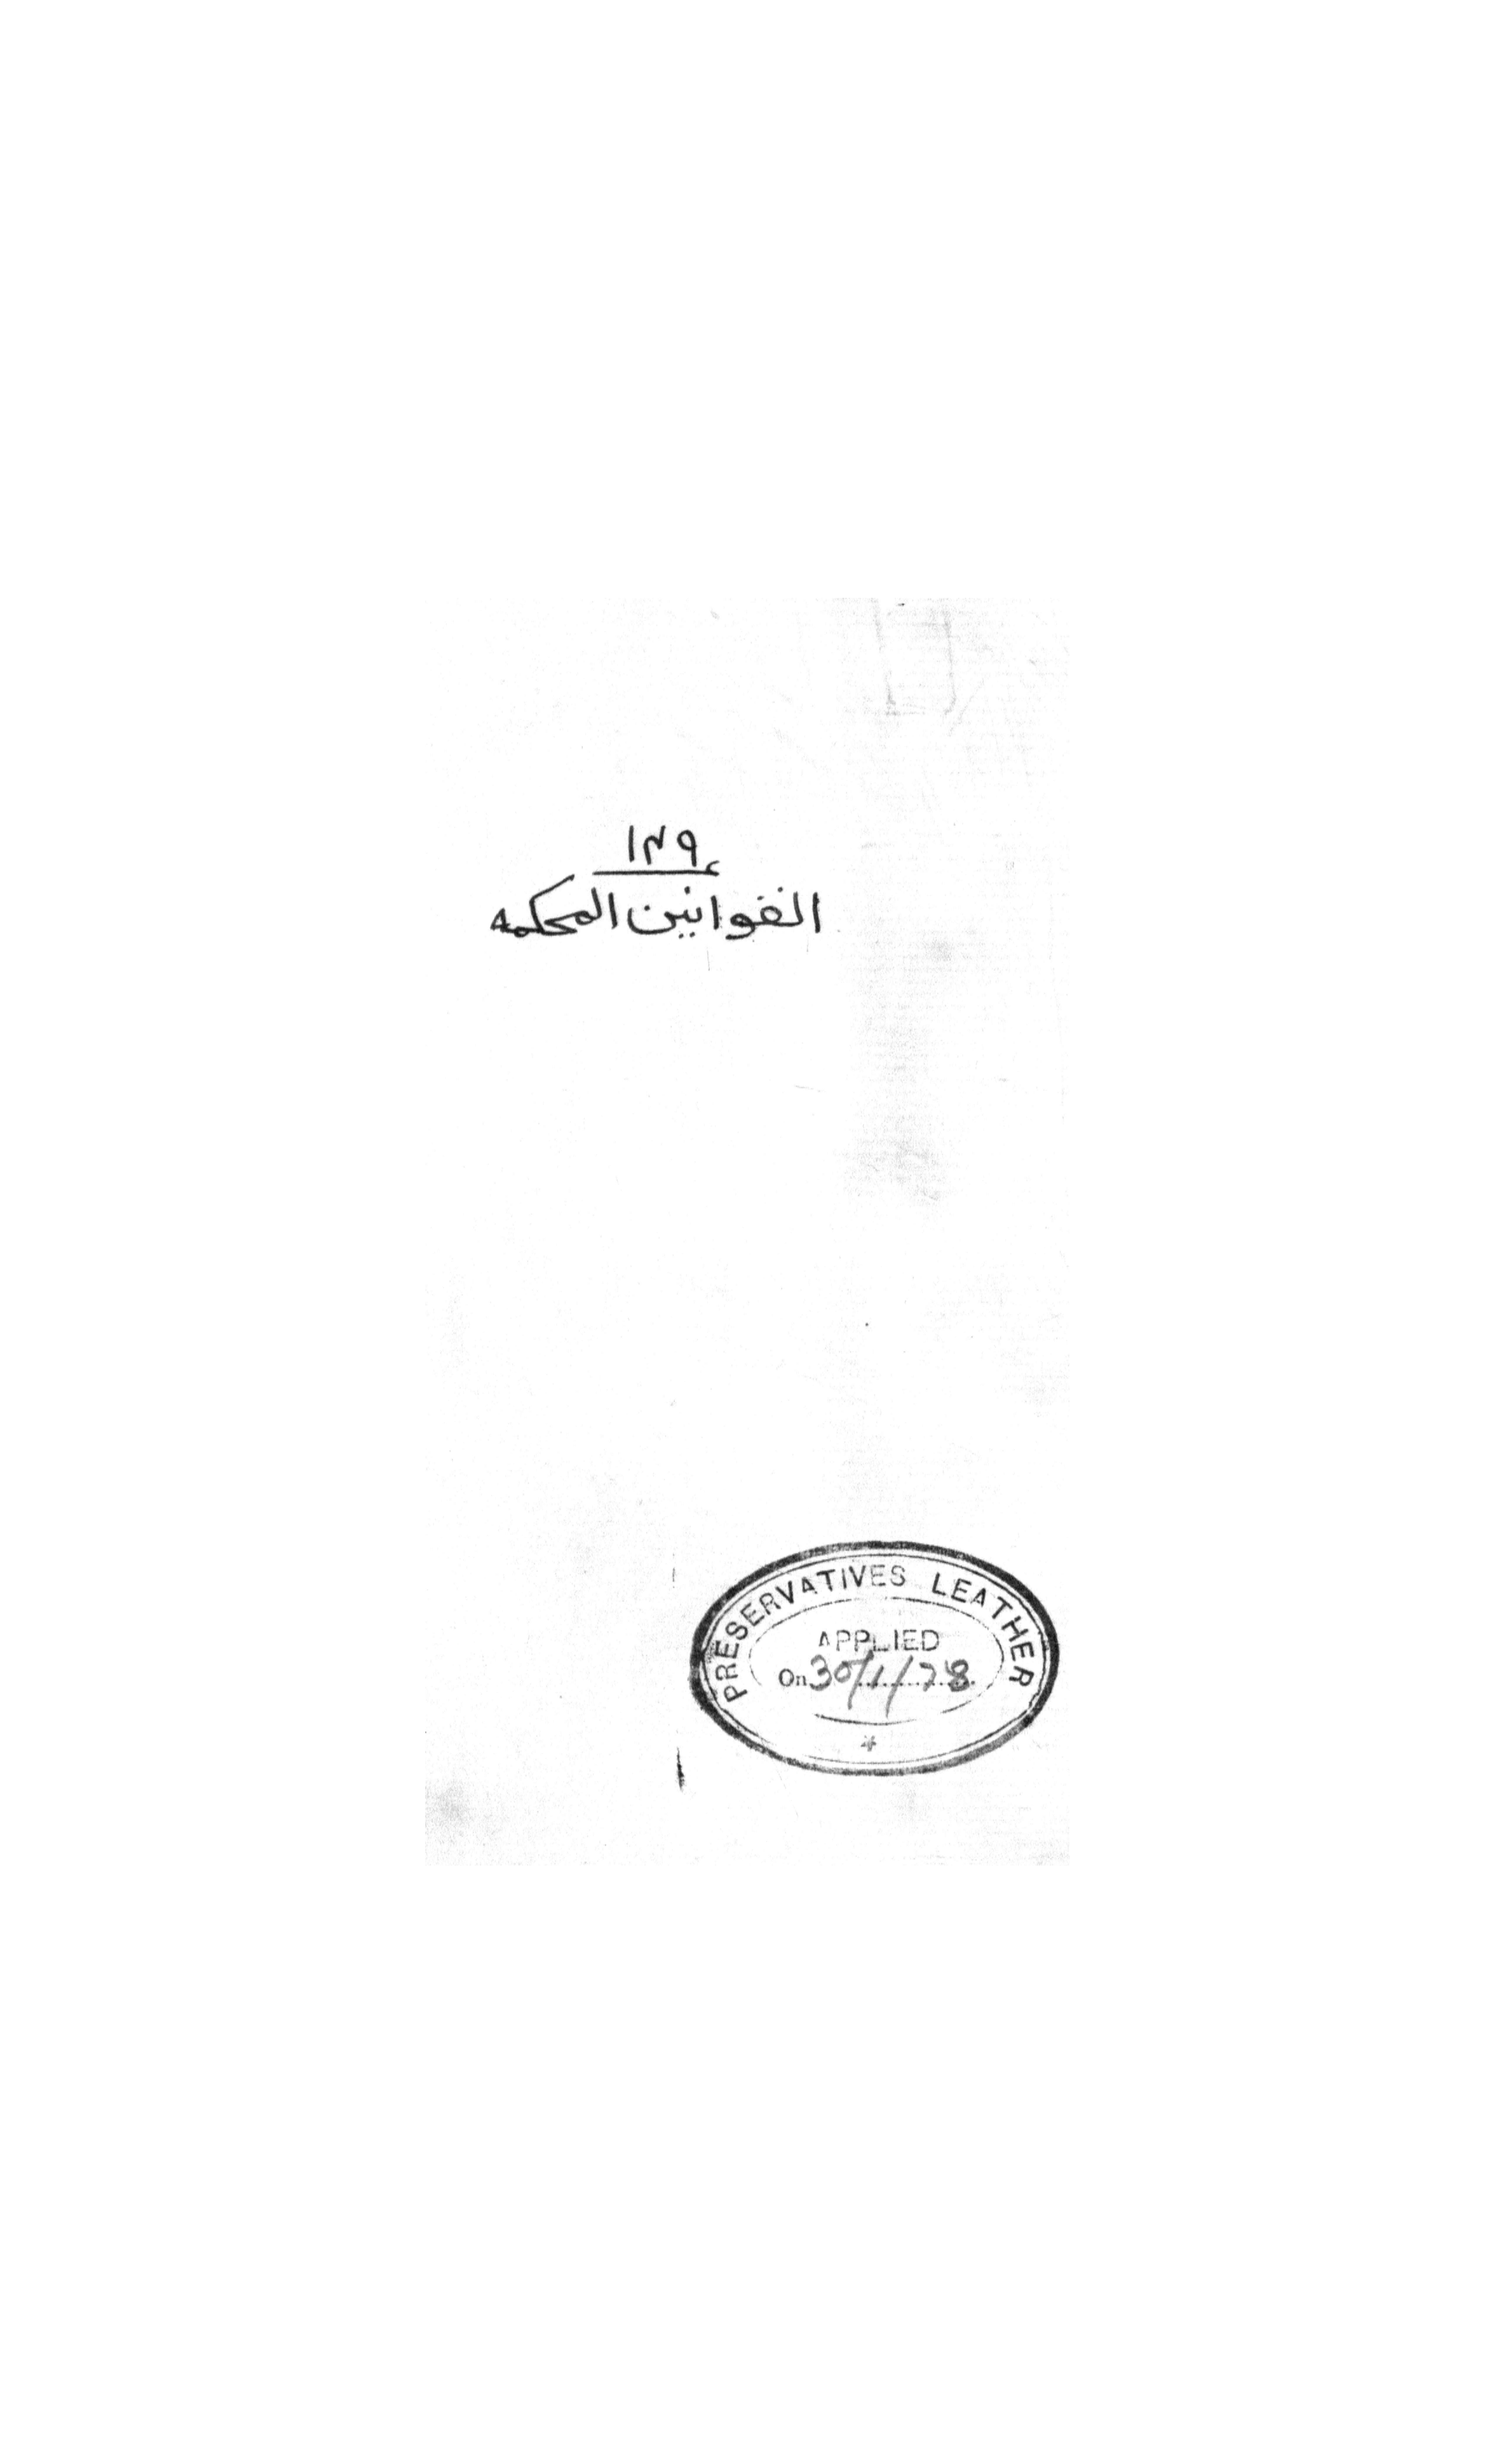 ١٣٩
القوانين المحكمه
PRESERVATIVES LEATHER
APPLIED
On 30/1/78